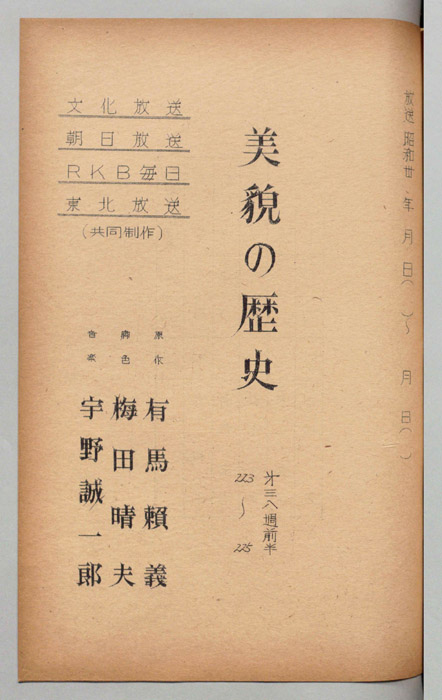 放送 昭和廿 年 月 日( )~ 月 日( )
美貌の歴史
才三八週前半
223
~
225
原作 有馬頼義
脚色 梅田晴夫
音楽 宇野誠一郎
文化放送
朝日放送
RKB毎日
東北放送
(共同制作)